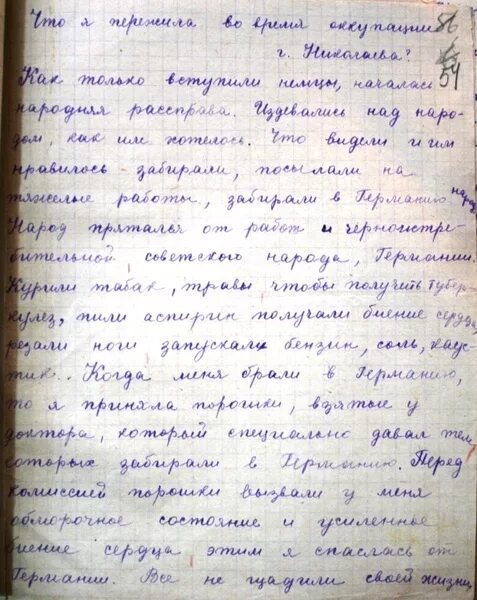 Что я пережила во время оккупации 86
г. Николаева? 54
Как только вступили немцы, началась
народняя расправа. Издевались над наро-
дом, как им хотелось. Что видели и им
нравилось - забирали, посылали на
тяжелые работы, забирали в Германию народ
Народ прятался от работ и черноистре-
бительной советского народа, Германии.
Курили табак, травы чтобы получить тубер-
кулез, пили аспирин получали биение сердца,
резали ноги запускали бензин, соль, каус-
тик.. Когда меня брали в Германию,
то я приняла порошки, взятые у
доктора, который специально давал тем
которых забирали в Германию. Перед
комиссией порошки вызвали у меня
обморочное состояние и усиленное
биение сердца этим я спаслась от
Германии. Все не щадили своей жизни,